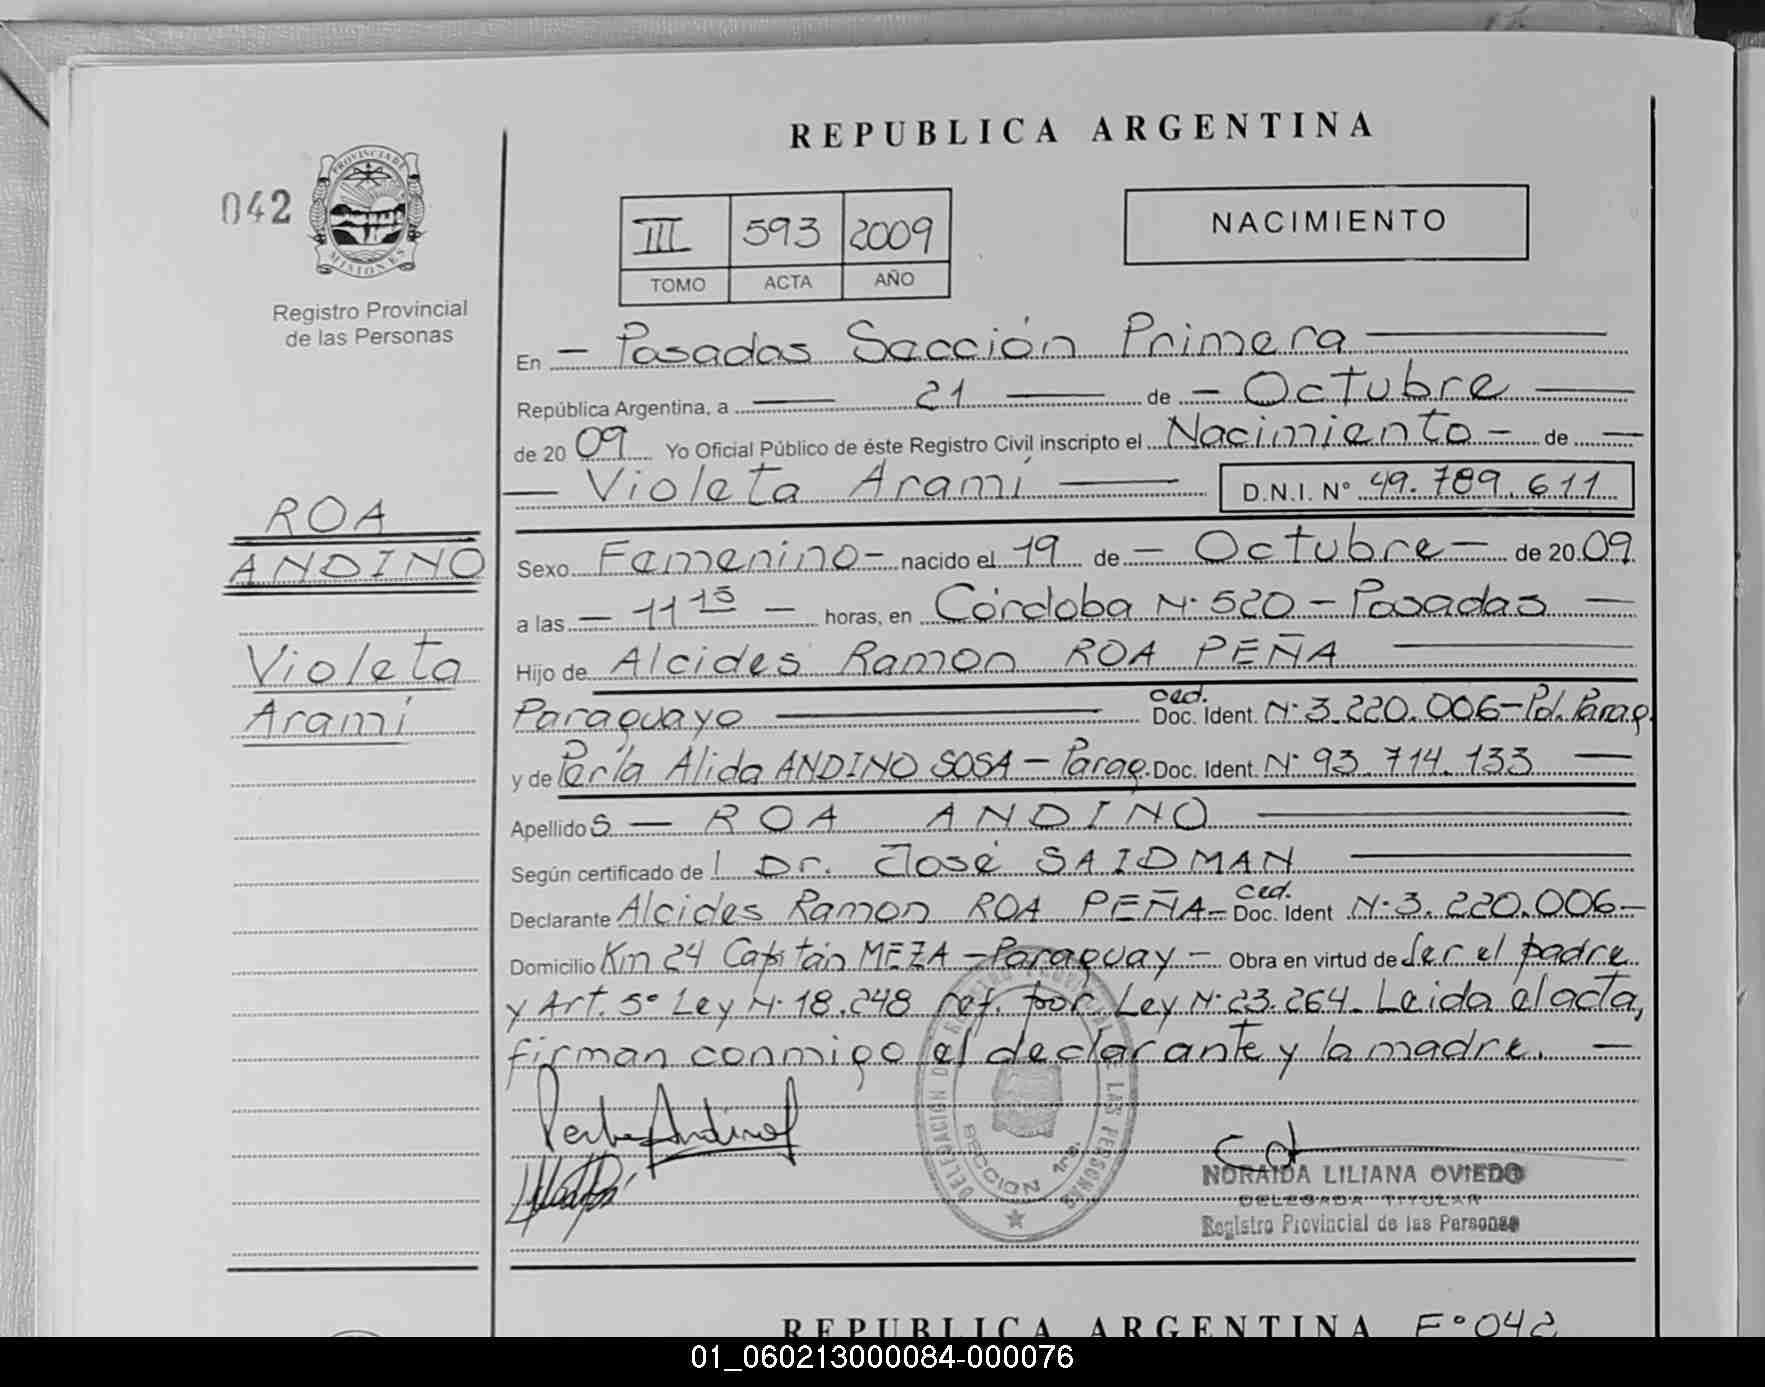 REPUBLICA ARGENTINA
042
PROVINCIA DE
MISIONES
Registro Provincial
de las Personas
III 593 2009
TOMO ACTA AÑO
NACIMIENTO
En — Posadas Sección Primera
República Argentina, a 21 de — Octubre
de 20 09 Yo Oficial Público de éste Registro Civil inscripto el Nacimiento — de —
— Violeta Aramí — D.N.I. N° 49.789.611
ROA
ANDINO
Violeta
Aramí
Sexo Femenino — nacido el 19 de — Octubre — de 20 09
a las — 11 15 — horas, en Córdoba N° 520 — Posadas —
Hijo de Alcides Ramon ROA PEÑA
Paraguayo — ced. Doc. Ident. N° 3.220.006 — Pol. Parag.
y de Perla Alida ANDINO SOSA — Parag. Doc. Ident. N° 93.714.133 —
Apellidos — ROA ANDINO
Según certificado del Dr. José SAIDMAN
Declarante Alcides Ramon ROA PEÑA — ced. Doc. Ident N° 3.220.006 —
Domicilio Km 24 Capitán MEZA — Paraguay — Obra en virtud de Ser el padre
y Art. 5° Ley N° 18.248 ref. por Ley N° 23.264. Leida el acta,
firman conmigo el declarante y la madre. —
Perla Andino
DELEGACION DE REGISTRO PROVINCIAL DE LAS PERSONAS
SECCION 1ra.
NORAIDA LILIANA OVIEDO
DELEGADA TITULAR
Registro Provincial de las Personas
REPUBLICA ARGENTINA F° 042
01_060213000084-000076